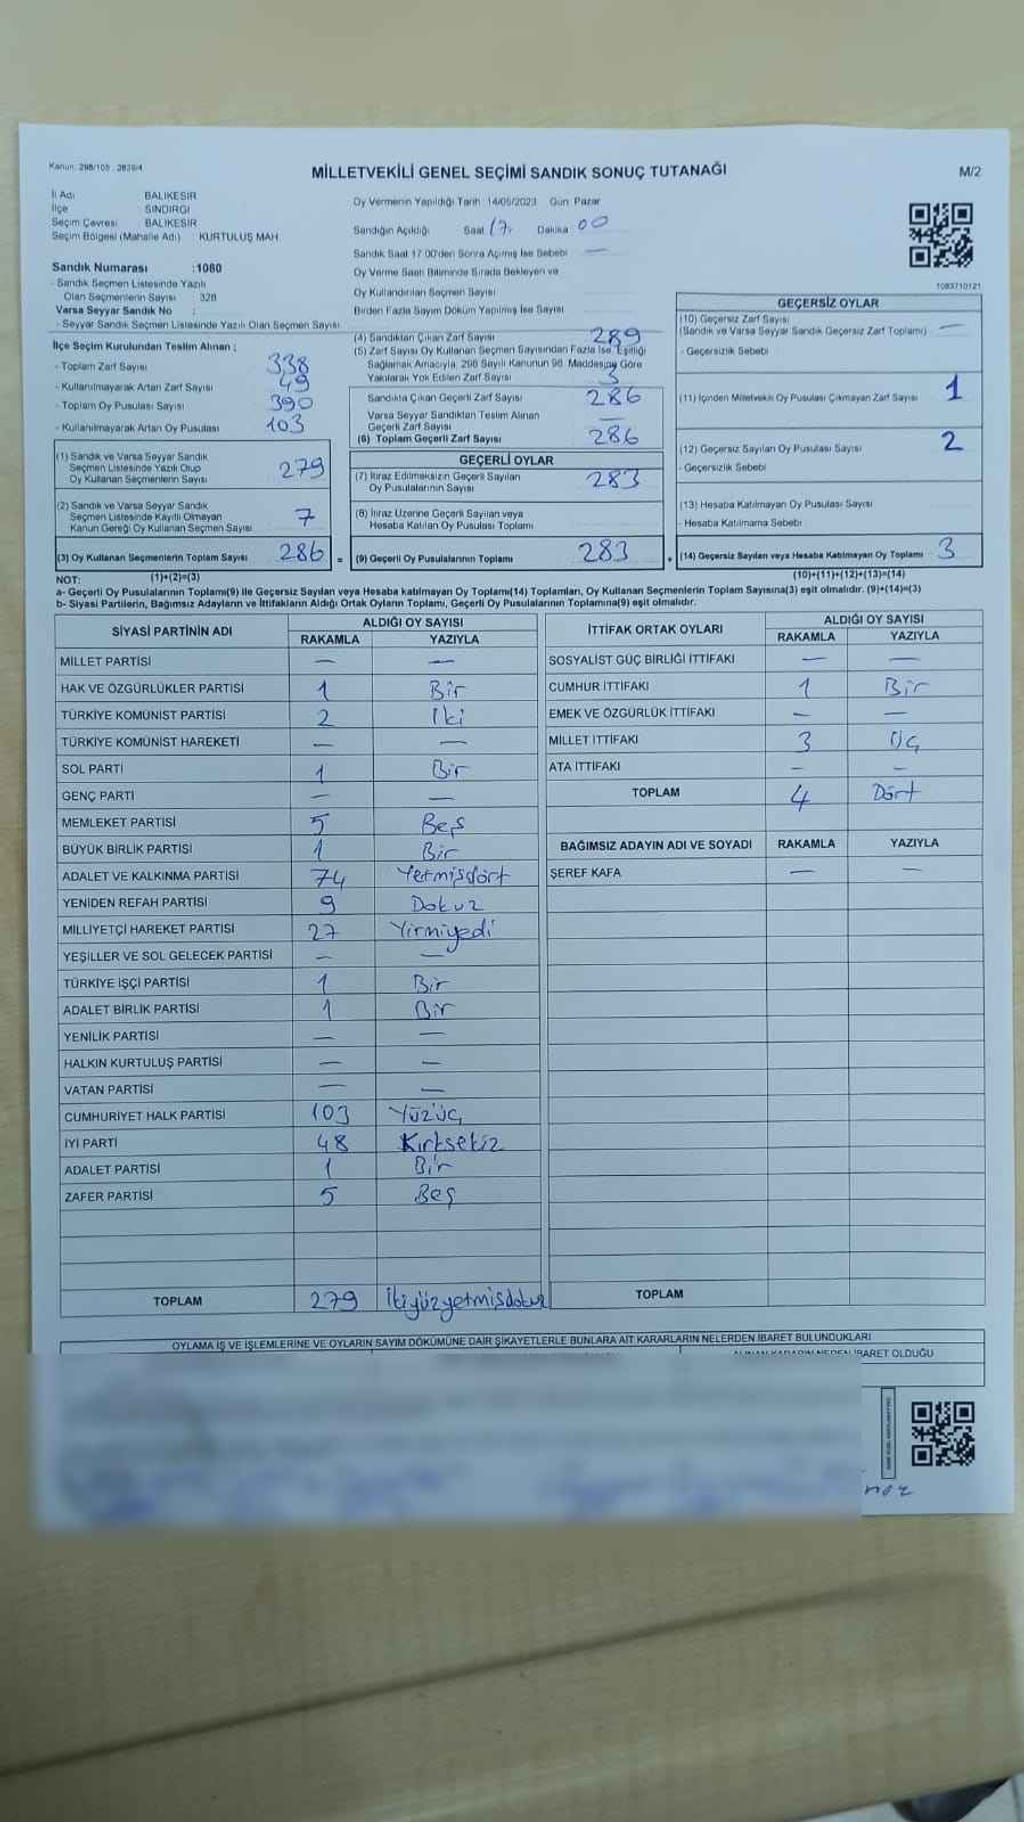 Kanun: 298/105 - 2839/4
MİLLETVEKİLİ GENEL SEÇİMİ SANDIK SONUÇ TUTANAĞI
M/2
İl Adı BALIKESİR
İlçe SINDIRGI
Seçim Çevresi BALIKESİR
Seçim Bölgesi (Mahalle Adı) KURTULUŞ MAH.
Sandık Numarası :1080
- Sandık Seçmen Listesinde Yazılı
Olan Seçmenlerin Sayısı 328
Varsa Seyyar Sandık No :
- Seyyar Sandık Seçmen Listesinde Yazılı Olan Seçmen Sayısı
İlçe Seçim Kurulundan Teslim Alınan ;
- Toplam Zarf Sayısı 338
- Kullanılmayarak Artan Zarf Sayısı 49
- Toplam Oy Pusulası Sayısı 390
- Kullanılmayarak Artan Oy Pusulası 103
(1) Sandık ve Varsa Seyyar Sandık
Seçmen Listesinde Yazılı Olup
Oy Kullanan Seçmenlerin Sayısı 279
(2) Sandık ve Varsa Seyyar Sandık
Seçmen Listesinde Kayıtlı Olmayan
Kanun Gereği Oy Kullanan Seçmen Sayısı 7
(3) Oy Kullanan Seçmenlerin Toplam Sayısı 286 =
(1)+(2)=(3)
Oy Vermenin Yapıldığı Tarih 14/05/2023 Gün Pazar
Sandığın Açıldığı Saat 17. Dakika 00
Sandık Saat 17:00'den Sonra Açılmış İse Sebebi —
Oy Verme Saati Bitiminde Sırada Bekleyen ve
Oy Kullandırılan Seçmen Sayısı
Birden Fazla Sayım Döküm Yapılmış İse Sayısı
(4) Sandıktan Çıkan Zarf Sayısı 289
(5) Zarf Sayısı Oy Kullanan Seçmen Sayısından Fazla İse, Eşitliği
Sağlamak Amacıyla, 298 Sayılı Kanunun 98. Maddesine Göre
Yakılarak Yok Edilen Zarf Sayısı 3
Sandıkta Çıkan Geçerli Zarf Sayısı 286
Varsa Seyyar Sandıktan Teslim Alınan
Geçerli Zarf Sayısı —
(6) Toplam Geçerli Zarf Sayısı 286
GEÇERLİ OYLAR
(7) İtiraz Edilmeksizin Geçerli Sayılan
Oy Pusulalarının Sayısı 283
(8) İtiraz Üzerine Geçerli Sayılan veya
Hesaba Katılan Oy Pusulası Toplamı
(9) Geçerli Oy Pusulalarının Toplamı 283 +
1083710121
GEÇERSİZ OYLAR
(10) Geçersiz Zarf Sayısı
(Sandık ve Varsa Seyyar Sandık Geçersiz Zarf Toplamı) —
- Geçersizlik Sebebi
(11) İçinden Milletvekili Oy Pusulası Çıkmayan Zarf Sayısı 1
(12) Geçersiz Sayılan Oy Pusulası Sayısı 2
- Geçersizlik Sebebi
(13) Hesaba Katılmayan Oy Pusulası Sayısı
- Hesaba Katılmama Sebebi
(14) Geçersiz Sayılan veya Hesaba Katılmayan Oy Toplamı 3
(10)+(11)+(12)+(13)=(14)
NOT:
a- Geçerli Oy Pusulalarının Toplamı(9) ile Geçersiz Sayılan veya Hesaba katılmayan Oy Toplamı(14) Toplamları, Oy Kullanan Seçmenlerin Toplam Sayısına(3) eşit olmalıdır. (9)+(14)=(3)
b- Siyasi Partilerin, Bağımsız Adayların ve İttifakların Aldığı Ortak Oyların Toplamı, Geçerli Oy Pusulalarının Toplamına(9) eşit olmalıdır.
SİYASİ PARTİNİN ADI ALDIĞI OY SAYISI
RAKAMLA YAZIYLA
MİLLET PARTİSİ — —
HAK VE ÖZGÜRLÜKLER PARTİSİ 1 Bir
TÜRKİYE KOMÜNİST PARTİSİ 2 İki
TÜRKİYE KOMÜNİST HAREKETİ — —
SOL PARTİ 1 Bir
GENÇ PARTİ — —
MEMLEKET PARTİSİ 5 Beş
BÜYÜK BİRLİK PARTİSİ 1 Bir
ADALET VE KALKINMA PARTİSİ 74 Yetmişdört
YENİDEN REFAH PARTİSİ 9 Dokuz
MİLLİYETÇİ HAREKET PARTİSİ 27 Yirmiyedi
YEŞİLLER VE SOL GELECEK PARTİSİ — —
TÜRKİYE İŞÇİ PARTİSİ 1 Bir
ADALET BİRLİK PARTİSİ 1 Bir
YENİLİK PARTİSİ — —
HALKIN KURTULUŞ PARTİSİ — —
VATAN PARTİSİ — —
CUMHURİYET HALK PARTİSİ 103 Yüzüç
İYİ PARTİ 48 Kırksekiz
ADALET PARTİSİ 1 Bir
ZAFER PARTİSİ 5 Beş
TOPLAM 279 İkiyüzyetmişdokuz
İTTİFAK ORTAK OYLARI ALDIĞI OY SAYISI
RAKAMLA YAZIYLA
SOSYALİST GÜÇ BİRLİĞİ İTTİFAKI — —
CUMHUR İTTİFAKI 1 Bir
EMEK VE ÖZGÜRLÜK İTTİFAKI — —
MİLLET İTTİFAKI 3 Üç
ATA İTTİFAKI — —
TOPLAM 4 Dört
BAĞIMSIZ ADAYIN ADI VE SOYADI RAKAMLA YAZIYLA
ŞEREF KAFA — —
TOPLAM
OYLAMA İŞ VE İŞLEMLERİNE VE OYLARIN SAYIM DÖKÜMÜNE DAİR ŞİKAYETLERLE BUNLARA AİT KARARLARIN NELERDEN İBARET BULUNDUKLARI
ALINAN KARARIN NEDEN İBARET OLDUĞU